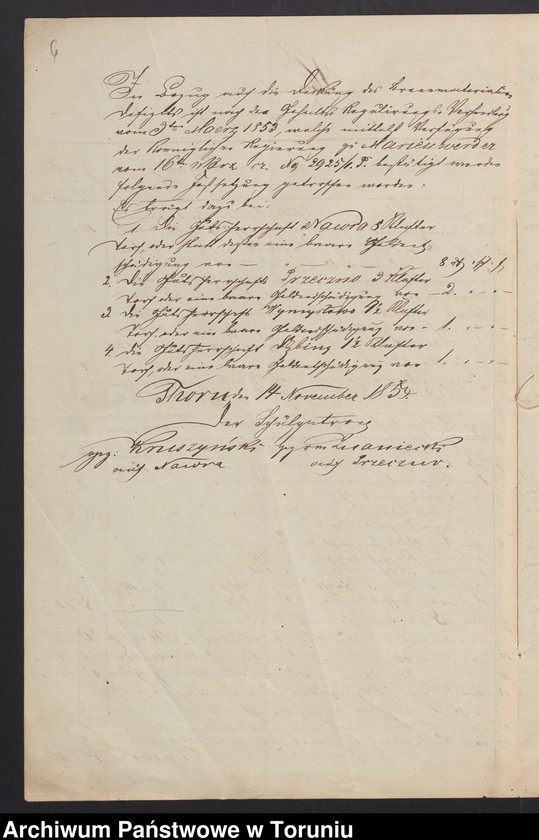 6
In Bezug auf die Deckung des Brennmaterialien
Defizits ist nach der Gehalts Regulirungs Verhandlung
vom 3ten Maerz 1853, welche mittelst Verfügung
der Königlichen Regierung zu Marienwerder
vom 16ten März cr. No 2925/1. P. bestätigt worden
folgende Festsetzung getroffen worden:
Es trägt dazu bei:
1. Die Gutsherrschaft Nawra 8 Klafter
Torf, oder statt dessen eine baare Geldent
schädigung von — 8
2. Die Gutsherrschaft Brzeczno 3 Klafter
Torf oder eine baare Geldentschädigung von — 2. " — " —
3. Die Gutsherrschaft Wymysłowo 1½ Klafter
Torf, oder eine baare Geldentschädigung von — 1. " — " —
4 Die Gutsherrschaft 1½ Klafter
Torf, oder eine baare Geldentschädigung von 1. " — " —
Thorn den 14 November 1854.
Der Schulpatron
gez: Kruszyński gez
auf Nawra auf Brzeczno.
Archiwum Państwowe w Toruniu